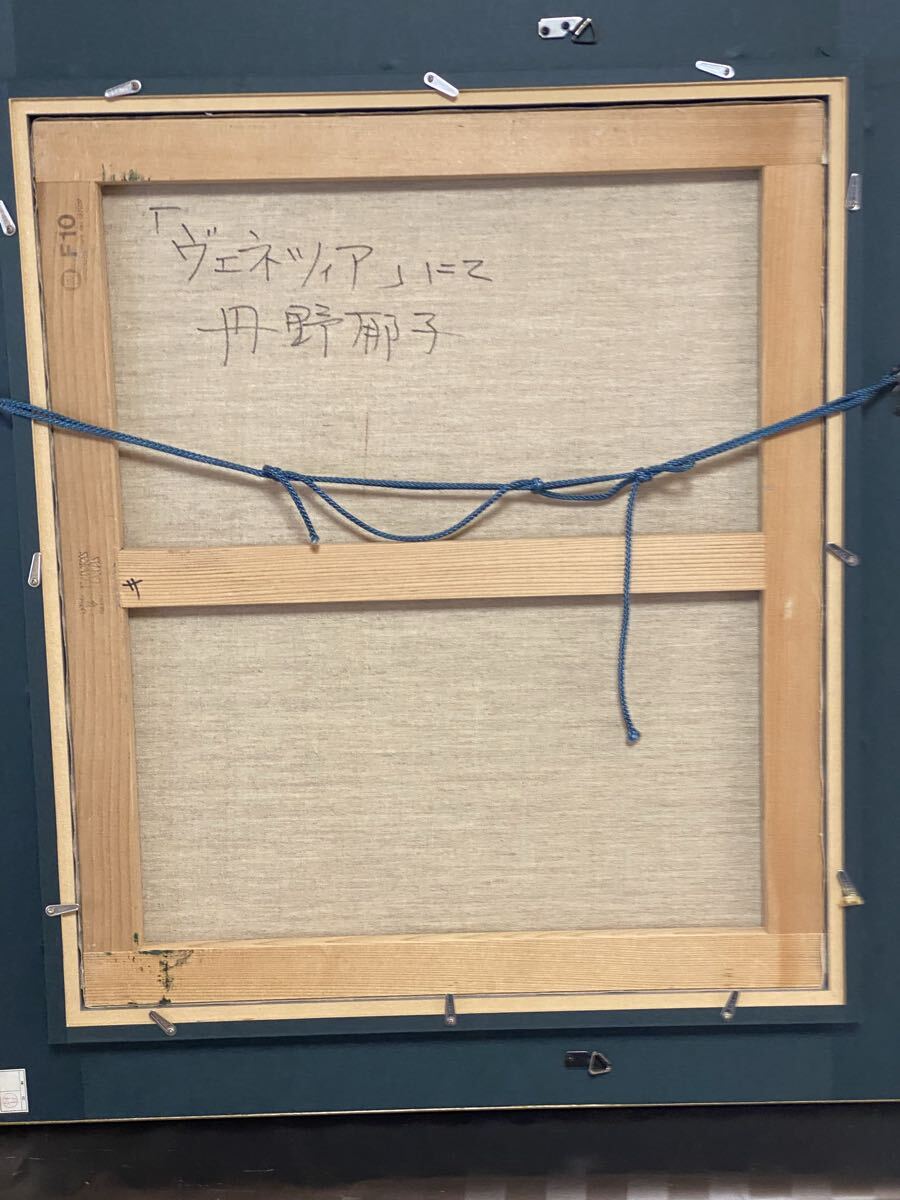 「ヴェネツィア」にて
丹野郁子
F10